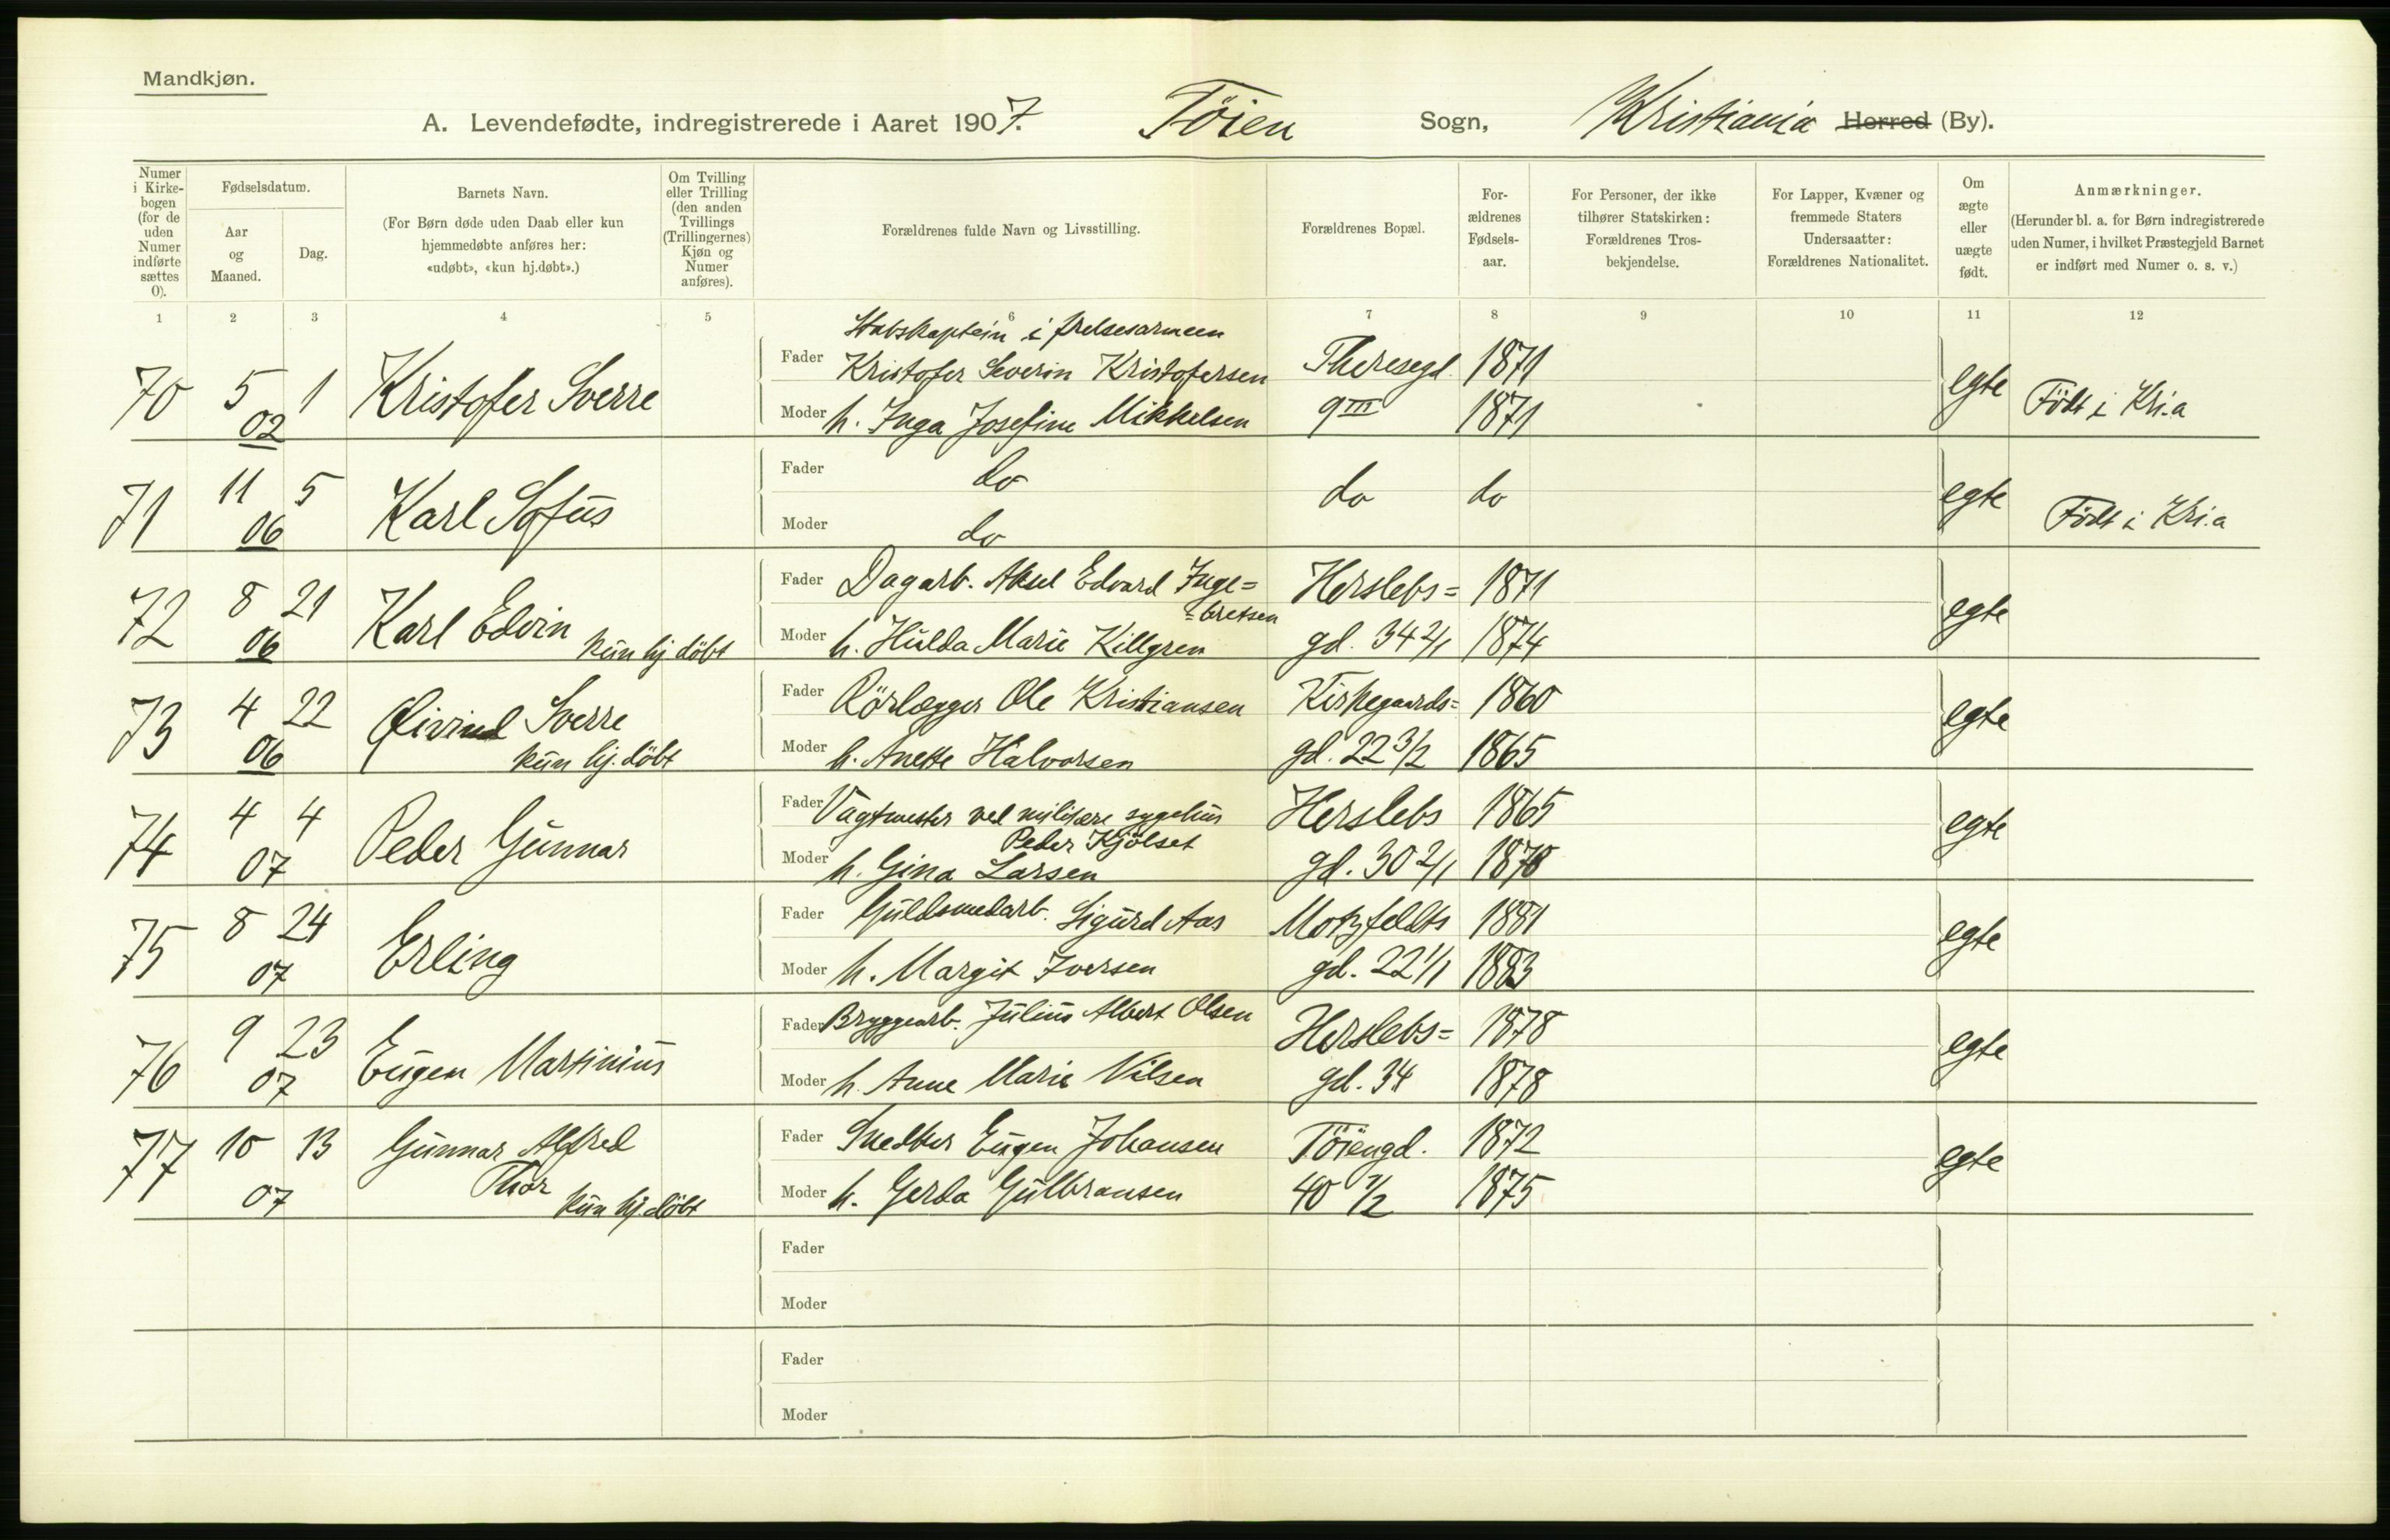 Mandkjøn.
A. Levendefødte, indregistrerede i Aaret 1907. Töien Sogn, Kristiania Herred (By).
Numer i Kirkebogen (for de uden Numer indførte sættes 0).
Fødselsdatum.
Aar og Maaned.
Dag.
Barnets Navn.
(For Børn døde uden Daab eller kun
hjemmedøbte anføres her:
«udøbt», «kun hj.døbt».)
Om Tvilling
eller Trilling
(den anden
Tvillings
(Trillingernes)
Kjøn og
Numer
anføres).
Forældrenes fulde Navn og Livsstilling.
Forældrenes Bopæl.
For-
ældrenes
Fødsels-
aar.
For Personer, der ikke
tilhører Statskirken:
Forældrenes Tros-
bekjendelse.
For Lapper, Kvæner og
fremmede Staters
Undersaatter:
Forældrenes Nationalitet.
Om
ægte
eller
uægte
født.
Anmærkninger.
(Herunder bl. a. for Børn indregistrerede
uden Numer, i hvilket Præstegjeld Barnet
er indført med Numer o. s. v.)
1 2 3 4 5 6 7 8 9 10 11 12
Stabskaptein i frelsesarmeen
70 5 1 Kristofer Sverre Fader Kristofer Severin Kristofersen Theresegd. 1871 egte Födt i Kri.a
02 Moder h. Inga Josefine Mikkelsen 9 III 1871
71 11 5 Karl Sofus Fader do do do egte Födt i Kri.a
06 Moder do
72 8 21 Karl Edvin Fader Dagarb. Aksel Edvard Inge= Herslebs= 1871 egte
=bretsen
06 kun hj döbt Moder h. Hulda Marie Killgren gd. 34 2/1 1874
73 4 22 Øivind Sverre Fader Rörlægger Ole Kristiansen Kirkegaards= 1860 egte
06 kun hj. döbt Moder h. Anette Halvorsen gd. 22 3/2 1865
74 4 4 Peder Gunnar Fader Vagtmester ved militære sygehus Herslebs 1865 egte
Peder Kjölset
07 Moder h. Gina Larsen gd. 30 2/1 1870
75 8 24 Erling Fader Guldsmedarb. Sigurd Aas Motzfeldts 1881 egte
07 Moder h. Margit Iversen gd. 22 1/1 1883
76 9 23 Eugen Martinius Fader Bryggearb. Julius Albert Olsen Herslebs= 1878 egte
07 Moder h. Anne Marie Nilsen gd. 34 1878
77 10 13 Gunnar Alfred Fader Snedker Eugen Johansen Töiengd. 1872 egte
Thor
07 kun hj. döbt Moder h. Gerda Gulbransen 40 1/2 1875
Fader
Moder
Fader
Moder